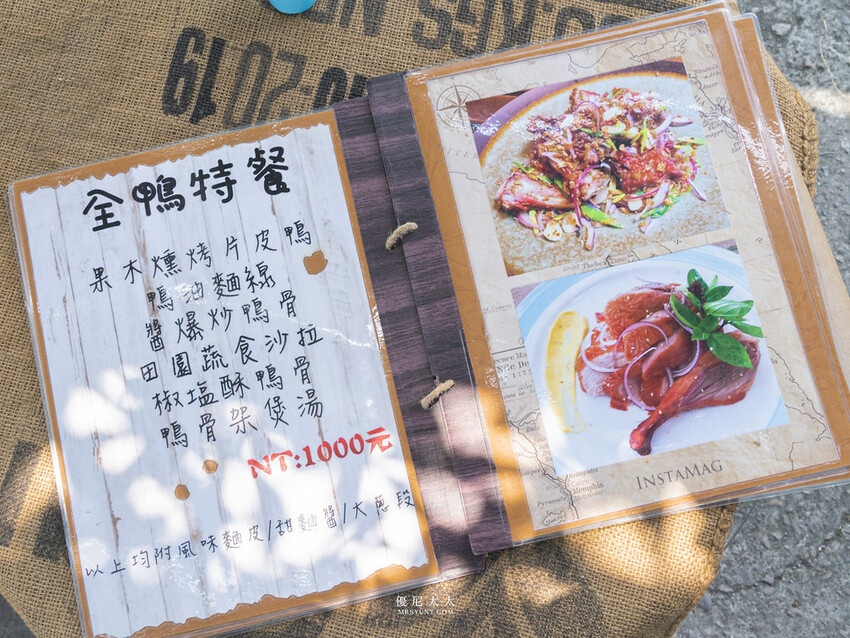 2019
全鴨特餐
果木燻烤片皮鴨
鴨油麵線
醬爆炒鴨骨
田園蔬食沙拉
椒塩酥鴨骨
鴨骨架煲湯
NT:1000元
以上均附風味麵皮/甜麵醬/大蔥段
INSTAMAG
Memphis
優尼太太
MRSYUNY.COM